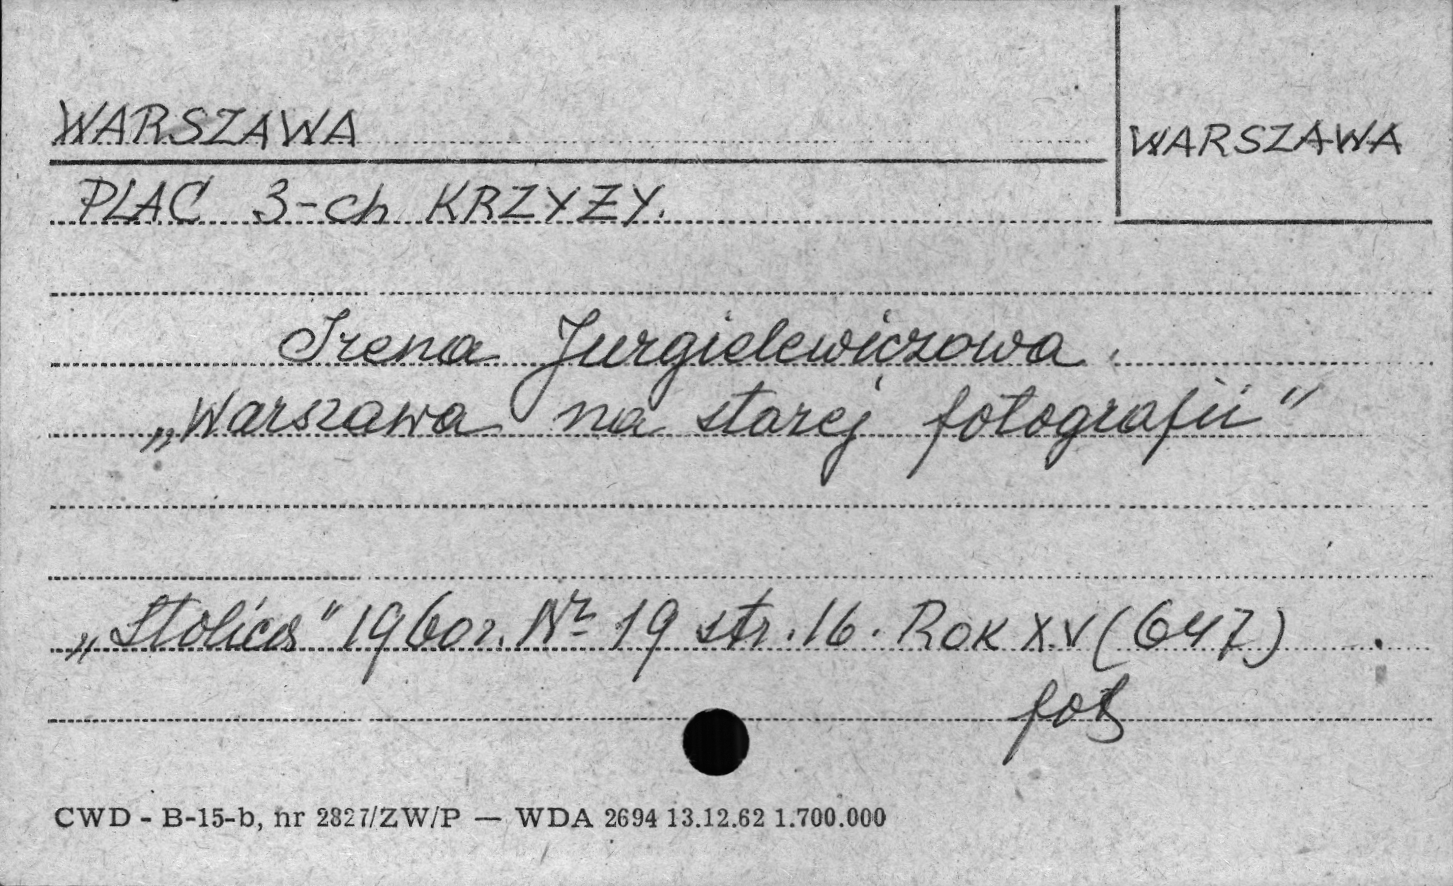 WARSZAWA
WARSZAWA
PLAC 3-ch KRZYŻY.
Irena Jurgielewiczowa.
„Warszawa na starej fotografii"
„Stolica" 1960r. Nr 19 str. 16. Rok XV (647)
fot
CWD - B-15-b, nr 2827/ZW/P — WDA 2694 13.12.62 1.700.000